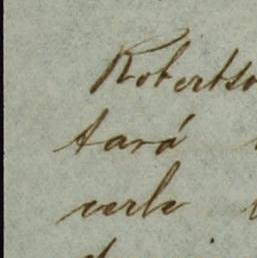 Robertso
tará
verle